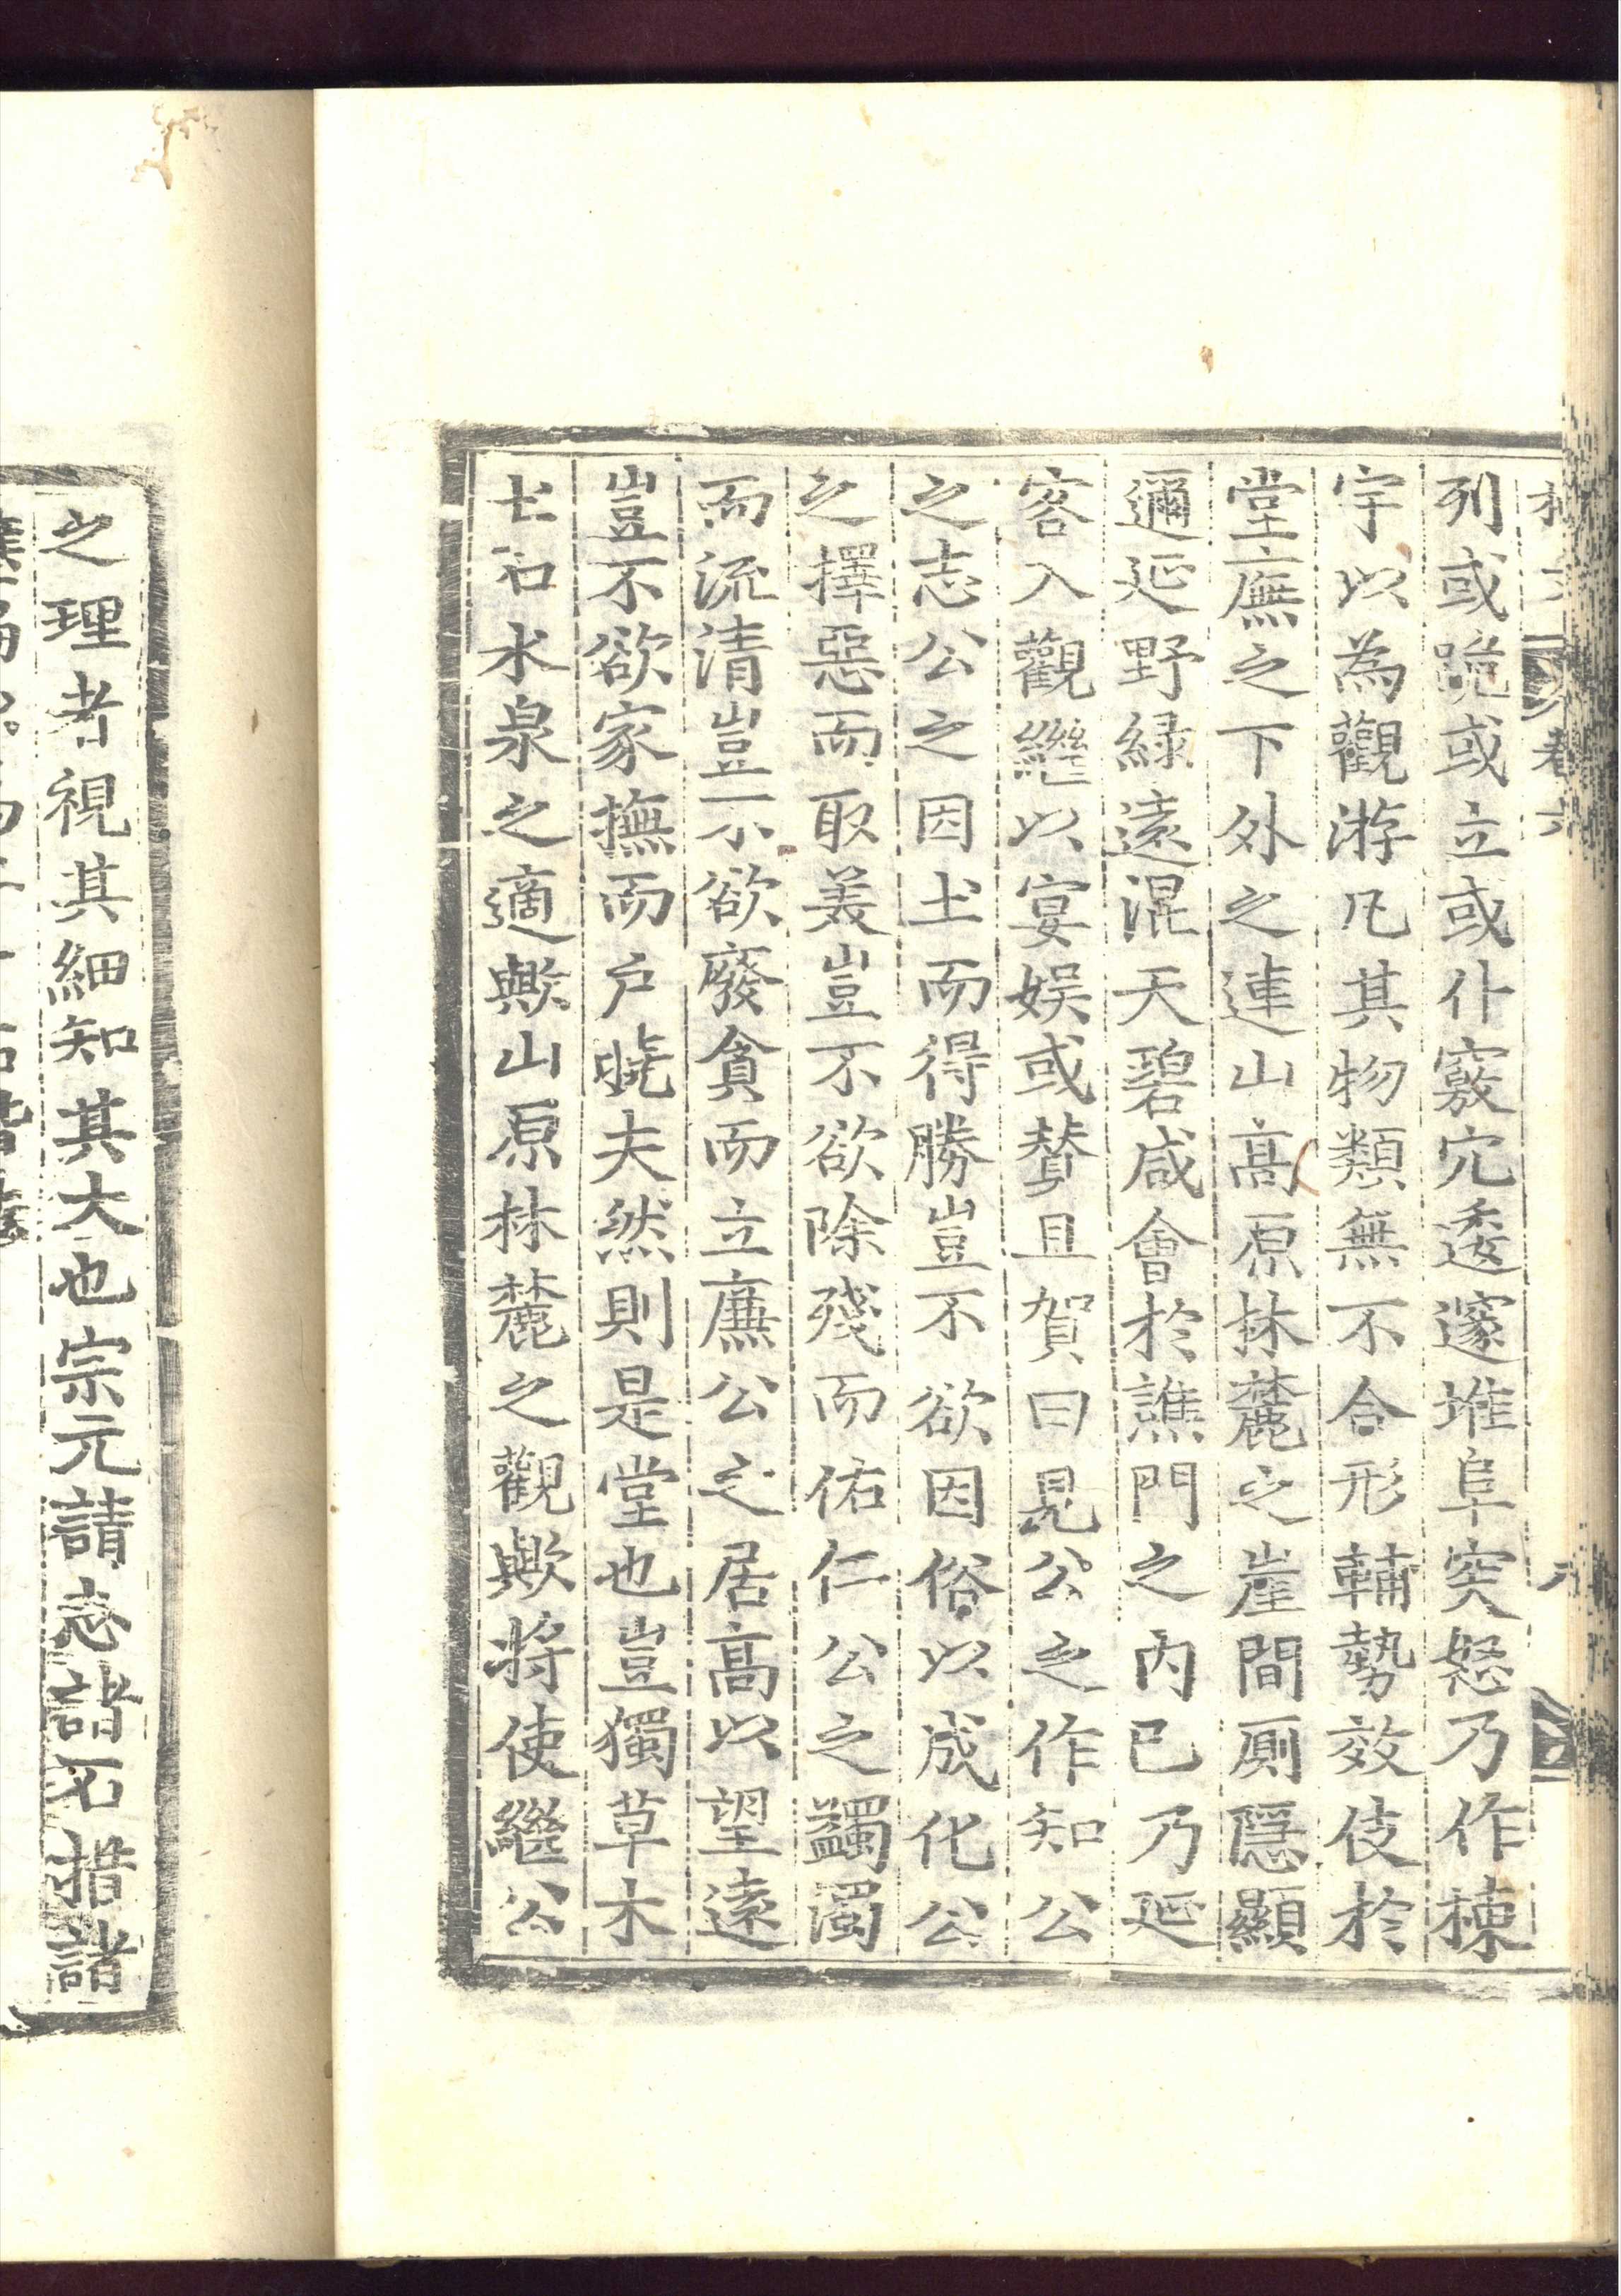 列或跪或立或仆竅穴逶邃堆阜突怒乃作棟
宇以為觀游凡其物類無不合形輔勢效伎於
堂廡之下外之連山高原林麓之崖間厠隱顯
邇延野綠遠混天碧咸會於譙門之內已乃延
客入觀繼以宴娛或贊且賀曰見公之作知公
之志公之因土而得勝豈不欲因俗以成化公
之擇惡而取美豈不欲除殘而佑仁公之蠲濁
而流清豈不欲廢貪而立廉公之居高以望遠
豈不欲家撫而戶曉夫然則是堂也豈獨草木
土石水泉之適歟山原林麓之觀歟將使繼公
之理者視其細知其大也宗元請志諸石措諸